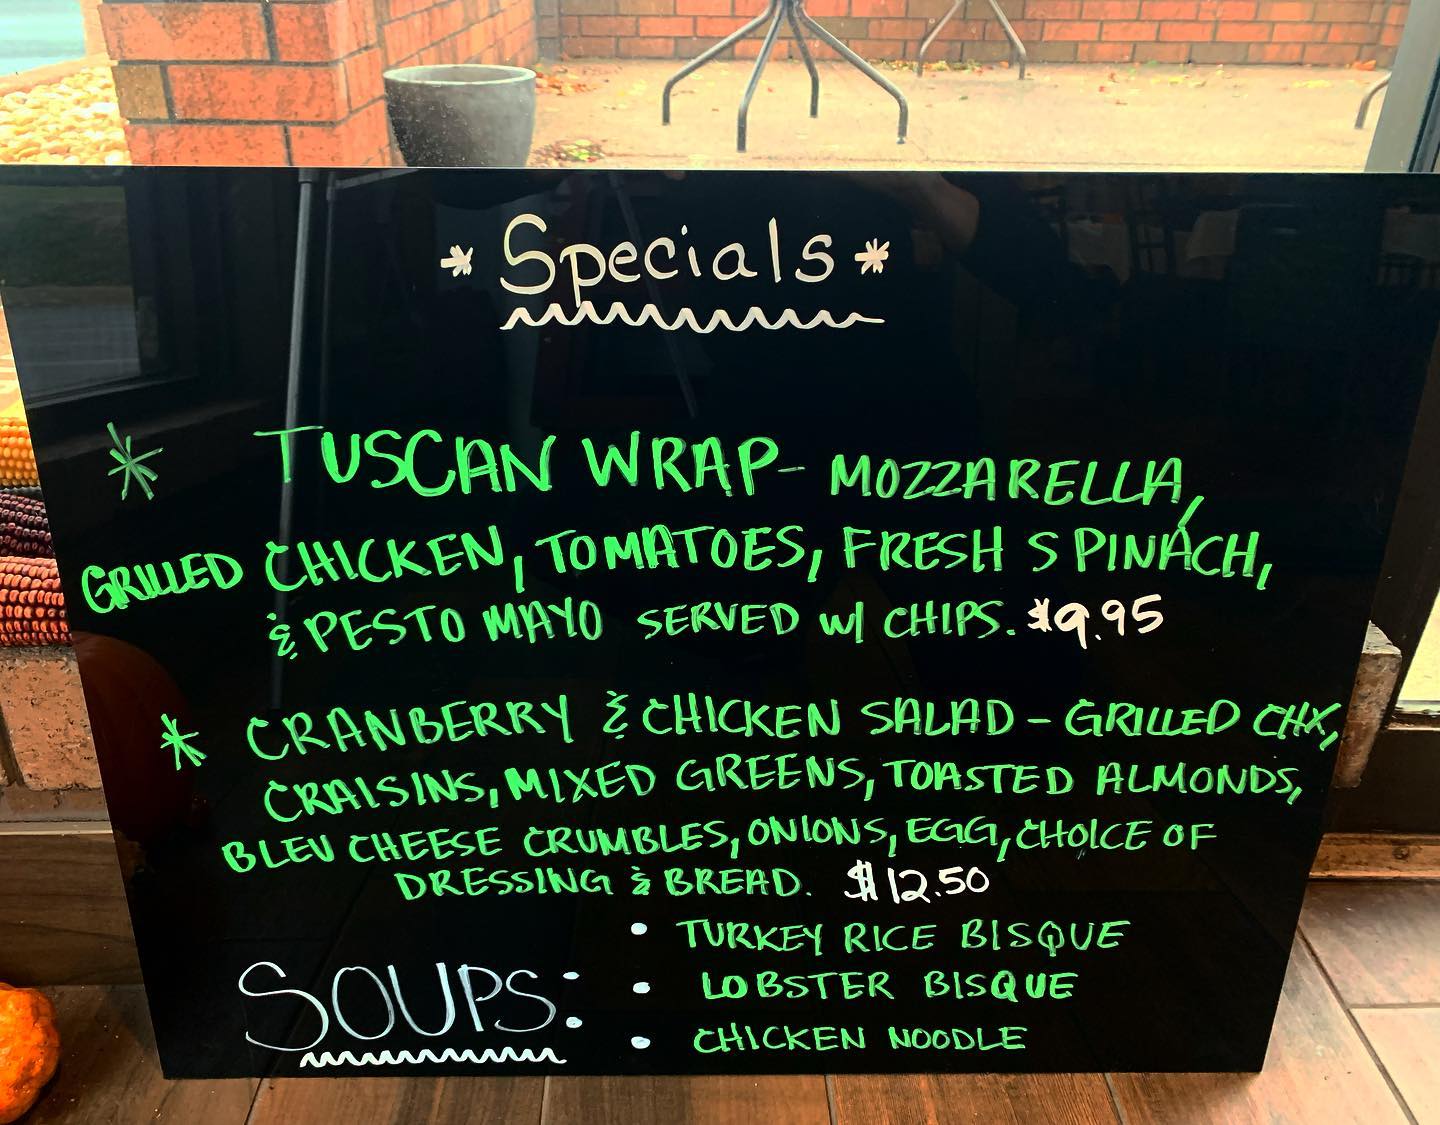 * Specials *
* TUSCAN WRAP- MOZZARELLA,
GRILLED CHICKEN, TOMATOES, FRESH SPINACH,
& PESTO MAYO SERVED w/ CHIPS. $9.95
* CRANBERRY & CHICKEN SALAD - GRILLED CHX,
CRAISINS, MIXED GREENS, TOASTED ALMONDS,
BLEU CHEESE CRUMBLES, ONIONS, EGG, CHOICE OF
DRESSING & BREAD. $12.50
SOUPS:
• TURKEY RICE BISQUE
• LOBSTER BISQUE
• CHICKEN NOODLE